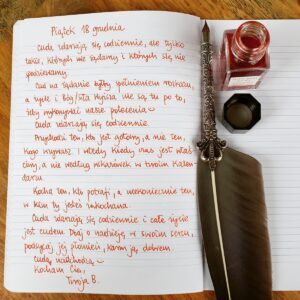 Piątek 18 grudnia
Cuda zdarzają się codziennie, ale tylko
takie, których nie żądamy i których się nie
spodziewamy.
Cud na żądanie byłby spełnieniem rozkazu,
a życie i Bóg i Siła Wyższa nie są tu po to,
żeby wykonywać nasze polecenia.
Cuda zdarzają się codziennie.
Przychodzi ten, kto jest gotowy, a nie ten,
kogo wzywasz. I wtedy kiedy czas jest właś-
ciwy, a nie według wskazówek w twoim kalen-
darzu.
Kocha ten, kto potrafi, a niekoniecznie ten,
w kim ty jesteś zakochana.
Cuda zdarzają się codziennie i całe życie
jest cudem. Dbaj o nadzieję w swoim sercu,
podsycaj jej płomień, karm ją dobrem.
Cuda nadchodzą
Kocham Cię,
Twoja B.